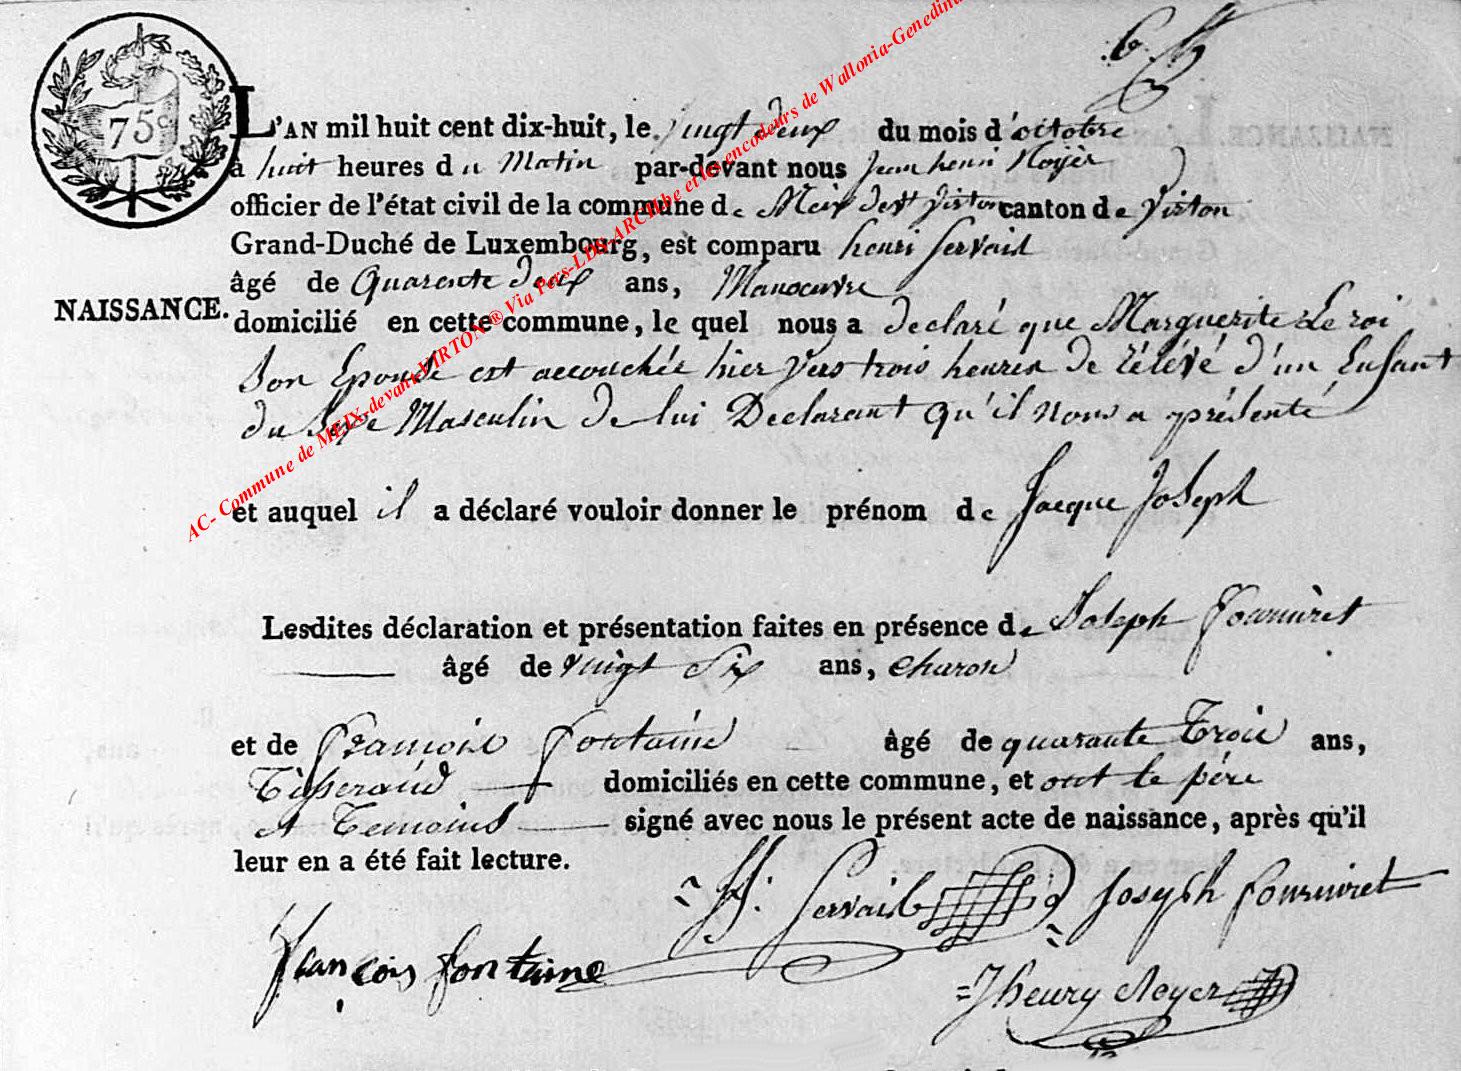 75c
L'AN mil huit cent dix-huit, le vingt deux du mois d'octobre
à huit heures du Matin par-devant nous Jean henri Noyèr
officier de l'état civil de la commune de Meix devt Virton canton de Virton
Grand-Duché de Luxembourg, est comparu henri Servais
NAISSANCE.
âgé de Quarente deux ans, Manoeuvre
domicilié en cette commune, le quel nous a declaré que Marguerite Le roi
Son Epouse est accouchée hier vers trois heures de rélévé d'un Enfant
du Sexe Masculin de lui Declarant qu'il nous a présenté
et auquel il a déclaré vouloir donner le prénom de Jacque Joseph
Lesdites déclaration et présentation faites en présence de Joseph Fourniret
âgé de vingt Six ans, charon
et de François Fontaine âgé de quarante Trois ans,
Tisserand domiciliés en cette commune, et ont le père
et Temoins signé avec nous le présent acte de naissance, après qu'il
leur en a été fait lecture.
H. Servais Joseph fourniret
françois fontaine
Jhenry Noyer
AC- Commune de MEIX-devant-VIRTON ® Via Pers-LDS-ARCH.be et les encodeurs de Wallonia-Genedina